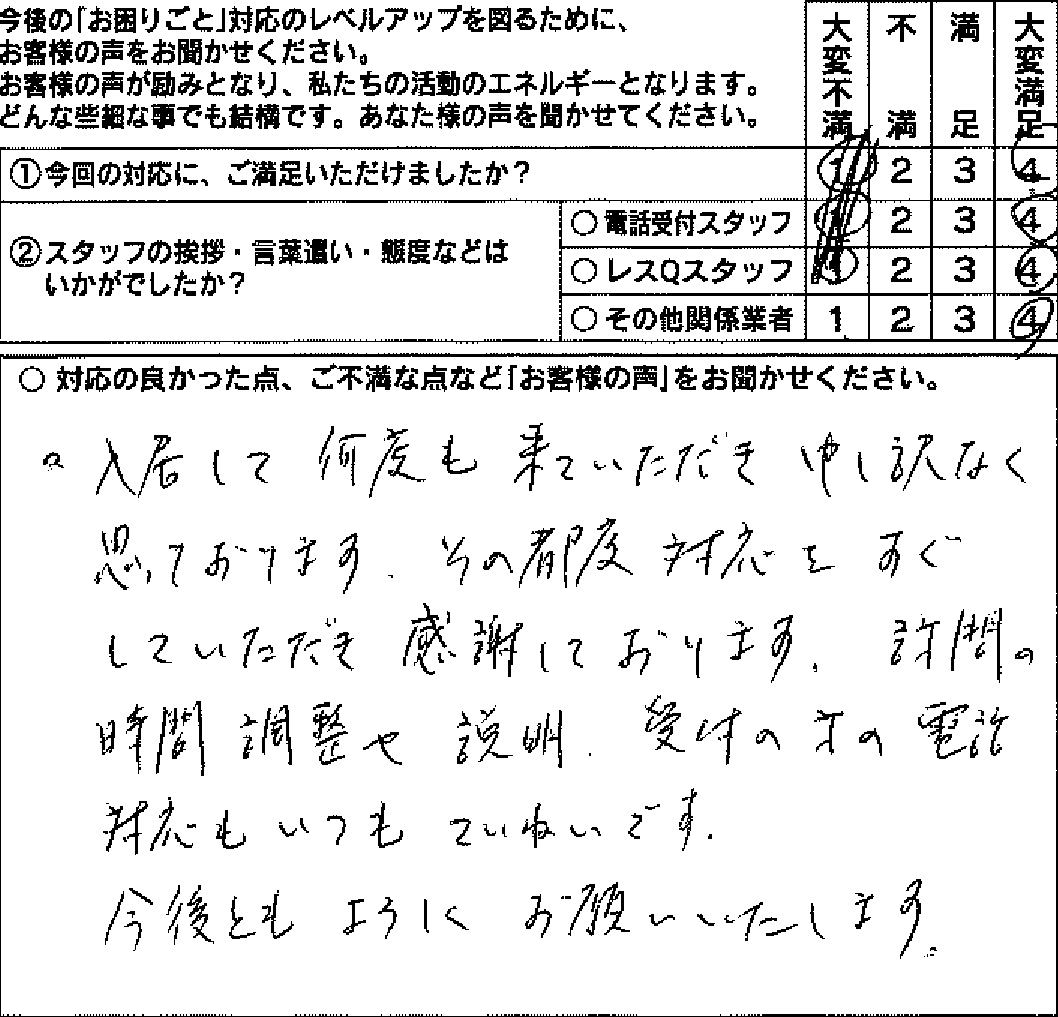 今後の「お困りごと」対応のレベルアップを図るために、
お客様の声をお聞かせください。
お客様の声が励みとなり、私たちの活動のエネルギーとなります。
どんな些細な事でも結構です。あなた様の声を聞かせてください。
大変不満 不満 満足 大変満足
①今回の対応に、ご満足いただけましたか? 1 2 3 4
②スタッフの挨拶・言葉遣い・態度などは
いかがでしたか?
○ 電話受付スタッフ 1 2 3 4
○ レスQスタッフ 1 2 3 4
○ その他関係業者 1 2 3 4
○ 対応の良かった点、ご不満な点など「お客様の声」をお聞かせください。
入居して何度も来ていただき申し訳なく
思っております。その都度対応をすぐ
していただき感謝しております。訪問の
時間調整や説明、受付の方の電話
対応もいつもていねいです。
今後ともよろしくお願いいたします。